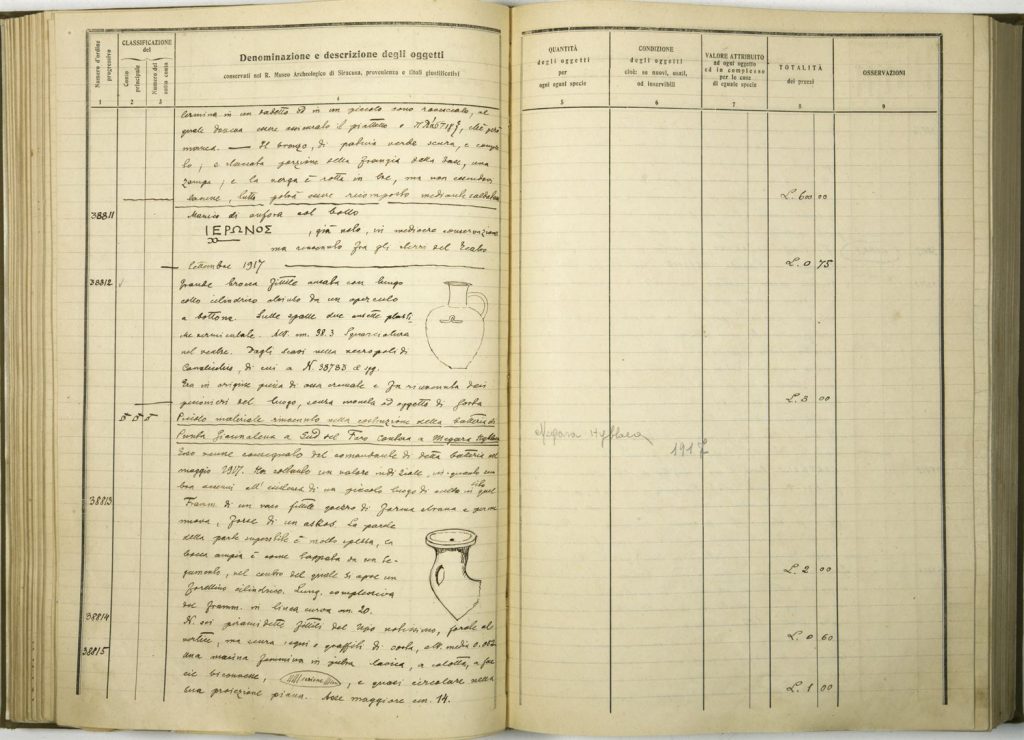 Numero d'ordine progressivo
CLASSIFICAZIONE del
Conto principale
Numero del sotto conto
Denominazione e descrizione degli oggetti
conservati nel R. Museo Archeologico di Siracusa, provenienza e titoli giustificativi
1 2 3 4
termina in un in un piccolo cono rovesciato, al
quale doveva essere il piattello o che però
manca. — Il bronzo, di patina verde scura, è
e staccata porzione della frangia della base, una
zampa, e la verga è rotta in tre, ma non essendovi
potrà essere ricomposto mediante
38811 Manico di anfora col bollo
ΙΕΡΩΝΟΣ, già noto, in mediocre conservazione
ma rinvenuto fra gli sterri del Teatro
Settembre 1917
38812 Grande brocca fittile ansata con lungo
collo cilindrico chiuso da un opercolo
a bottone. Sulle spalle due ansette plasti-
che vermiculate. Alt. cm. 38.3 Squarciatura
nel ventre. Dagli scavi nella necropoli di
Canalicchio, di cui a N. 38783 e sgg.
Era in origine piena di ossa cremate e fu rinvenuta dai
del luogo, senza moneta od oggetto di sorta
5 5 5 Piccolo materiale rinvenuto nella costruzione della batteria di
Punta a Sud del Faro Cantera a Megara Hyblaea
Esso venne consegnato dal comandante di detta batteria nel
maggio 1917. Ha soltanto un valore indiziale, in quanto
all'esistenza di un piccolo luogo di culto in quel sito
38813 Framm. di un vaso fittile grezzo di forma strana e
nuova, forse di un askos. La parete
della parte è molto spessa, la
bocca ampia è come tappata da un te-
gumento, nel centro del quale si apre un
forellino cilindrico. Lung. complessiva
del framm. in linea curva cm. 20.
38814 N. sei piramidette fittili del tipo notissimo, forate al
vertice, ma senza segni e graffiti di sorta, alt. media 0.082
38815 Una macina femmina in pietra lavica, a calotta, a fac-
cie biconvesse, sezione, e quasi circolare nella
sua proiezione piana. Asse maggiore cm. 14.
QUANTITÀ degli oggetti per ogni ogani specie
CONDIZIONE degli oggetti cioè: se nuovi, usati, od inservibili
VALORE ATTRIBUITO ad ogni oggetto ed in complesso per le cose di eguale specie
TOTALITÀ dei prezzi
OSSERVAZIONI
5 6 7 8 9
L. 600 00
L. 0 75
L. 3 00
Megara Hyblaea
1917
L. 2 00
L. 0 60
L. 1 00